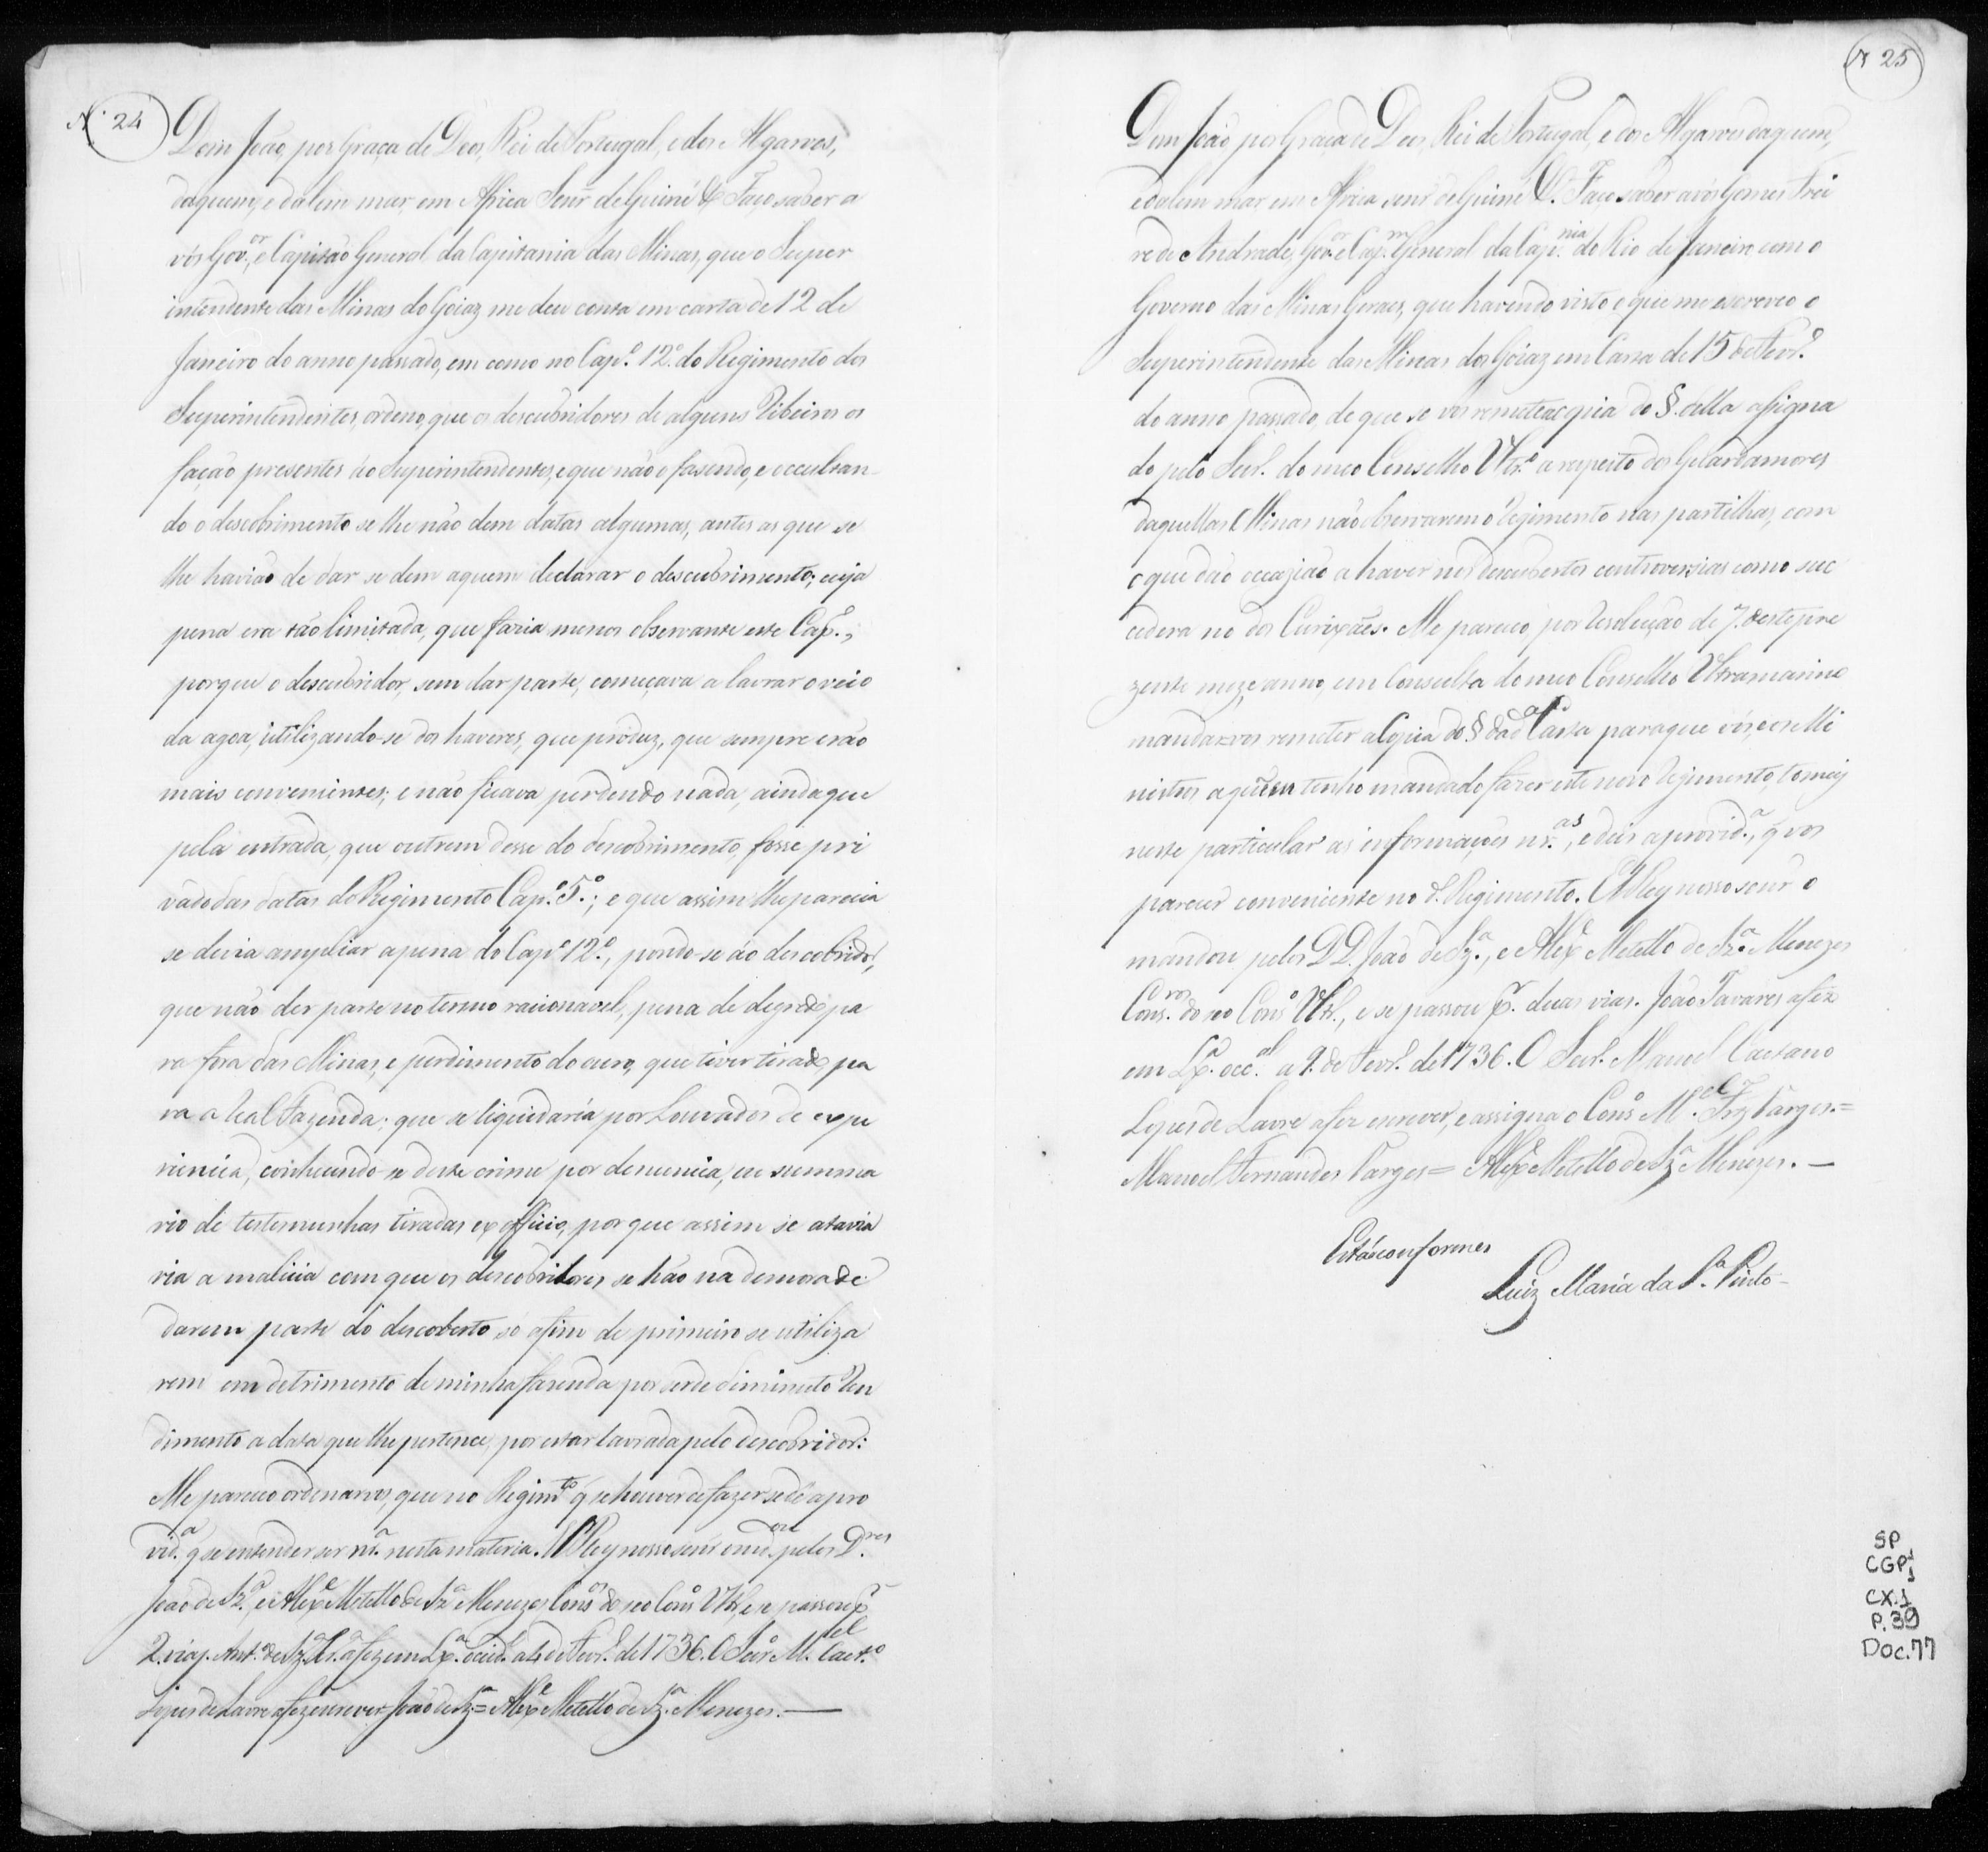 N.º 24
Dom João, por Graça de Deos, Rei de Portugal, e dos Algarves,
daquem, e dalem mar, em Africa Senr̃ de Guiné &ª Faço saber a
vós Gov.or, e Capitão General da Capitania das Minas, que o Super
intendente das Minas do Goiaz me deu conta em carta de 12 de
Janeiro do anno passado, em como no Cap.º 12.º do Regimento dos
Superintendentes, ordeno, que os descubridores de alguns Ribeiros os
fação presentes áo Superintendentes, e que não o fasendo, e occultan-
do o descobrimento se lhe não dem datas algumas, antes as que se
lhe havião de dar se dem aquem declarar o descubrimento; cuja
pena era tão limitada, que fazia menos observante este Cap.º,
porque o descubridor, sem dar parte, começava a lavrar o veio
da agoa, utilizando-se dos haveres, que produz, que sempre erão
mais convenientes; e não ficava perdendo nada, ainda que
pela entrada, que outrem desse do descobrimento, fosse pri
vado das datas do Regimento Cap.º 5.º; e que assim lhe parecia
se devia ampliar a pena do Cap.º 12.º, pondo-se áo descobridor,
que não der parte no termo racionavel, pena de degredo pa
ra fora das Minas, e perdimento do ouro, que tiver tirado, pa
ra a Real Fazenda; que se liquidaría por Louvados de expe
riencia, conhecendo-se deste crime por denuncia, ou summa
rio de testemunhas tiradas ex officio, por que assim se atavia
ria a malicia com que os descobridores se hão na demora de
darem parte do descoberto só afim de primeiro se utiliza
rem em detrimento de minha fazenda por ser de diminuto Ren
dimento a data que lhe pertence, por estar lavrada pelo descobridor:
Me pareceo ordenarvos, que no Regim.to q̃ se houver de fazer se dê a pro
vid.ª q̃ se entender ser nr.ª nesta materia. El Rey nosso senr̃ o md.ou pelos D.res
João de Sz.ª, e Alex.e Metello de Sz.ª Menezes Cons.os do seo Cons.º Ultr., e se passou p.r
2. vias. Ant.º de Sz.ª afez em Lx.ª occid.l a 4 de Fevr.º de 1736. O Secr.º M.el Caet.º
Lopes de Lavre a fez escrever João de Sz.ª = Alex.e Metello de Sz.ª Menezes. —
N 25
Dom João por Graça de Deos, Rei de Portugal, e dos Algarves daquem,
e dalem mar, em Africa senr̃ de Guiné &ª. Faço saber a vós Gomes Frei
re de Andrade, Gov.or e Cap.m General da Cap.nia do Rio de Janeiro com o
Governo das Minas Geraes, que havendo visto o que me escreveo o
Superintendente das Minas dos Goiaz em Carta de 15 de Fevr.º
do anno passado, de que se vos remete a copia do §. della assigna
do pelo Secr.º do meo Conselho Ultr.º a respeito dos Guardamores
daquellas Minas não observarem o Regimento nas partilhas, com
o que dão occazião a haver nos descubertos controversias como suc
cedera no dos Curixáes. Me pareceo, por Resolução de 7. deste pre
zente mez e anno, em Consulta do meo Conselho Ultramarino
mandarvos remeter a Copia do § da d.ª Carta para que vós, e os Mi
nistros a quem tenho mandado fazer este novo Regimento, tomeis
neste particular as informações nr.as, e deis a provid.ª, q̃ vos
parecer conveniente no d.º Regimento. El Rey nosso senr̃ o
mandou pelos D.D. João de Sz.ª, e Alex.e Metello de Sz.ª Menezes
Cons.ros do seo Cons.º Ultr., e se passou p.r duas vias. João Tavares a fez
em Lx.ª occ.al a 9. de Fevr.º de 1736. O Secr.º Manoel Caetano
Lopes de Lavre a fez escrever, e assigna o Cons.º M.el Frz Vargas. =
Manoel Fernandes Varges = Alex.e Metello de Sz.ª Menezes. —
Estáo conformes
Luiz Maria da S.ª Pinto -
SP
CGP1
CX.1
P.39
Doc.77